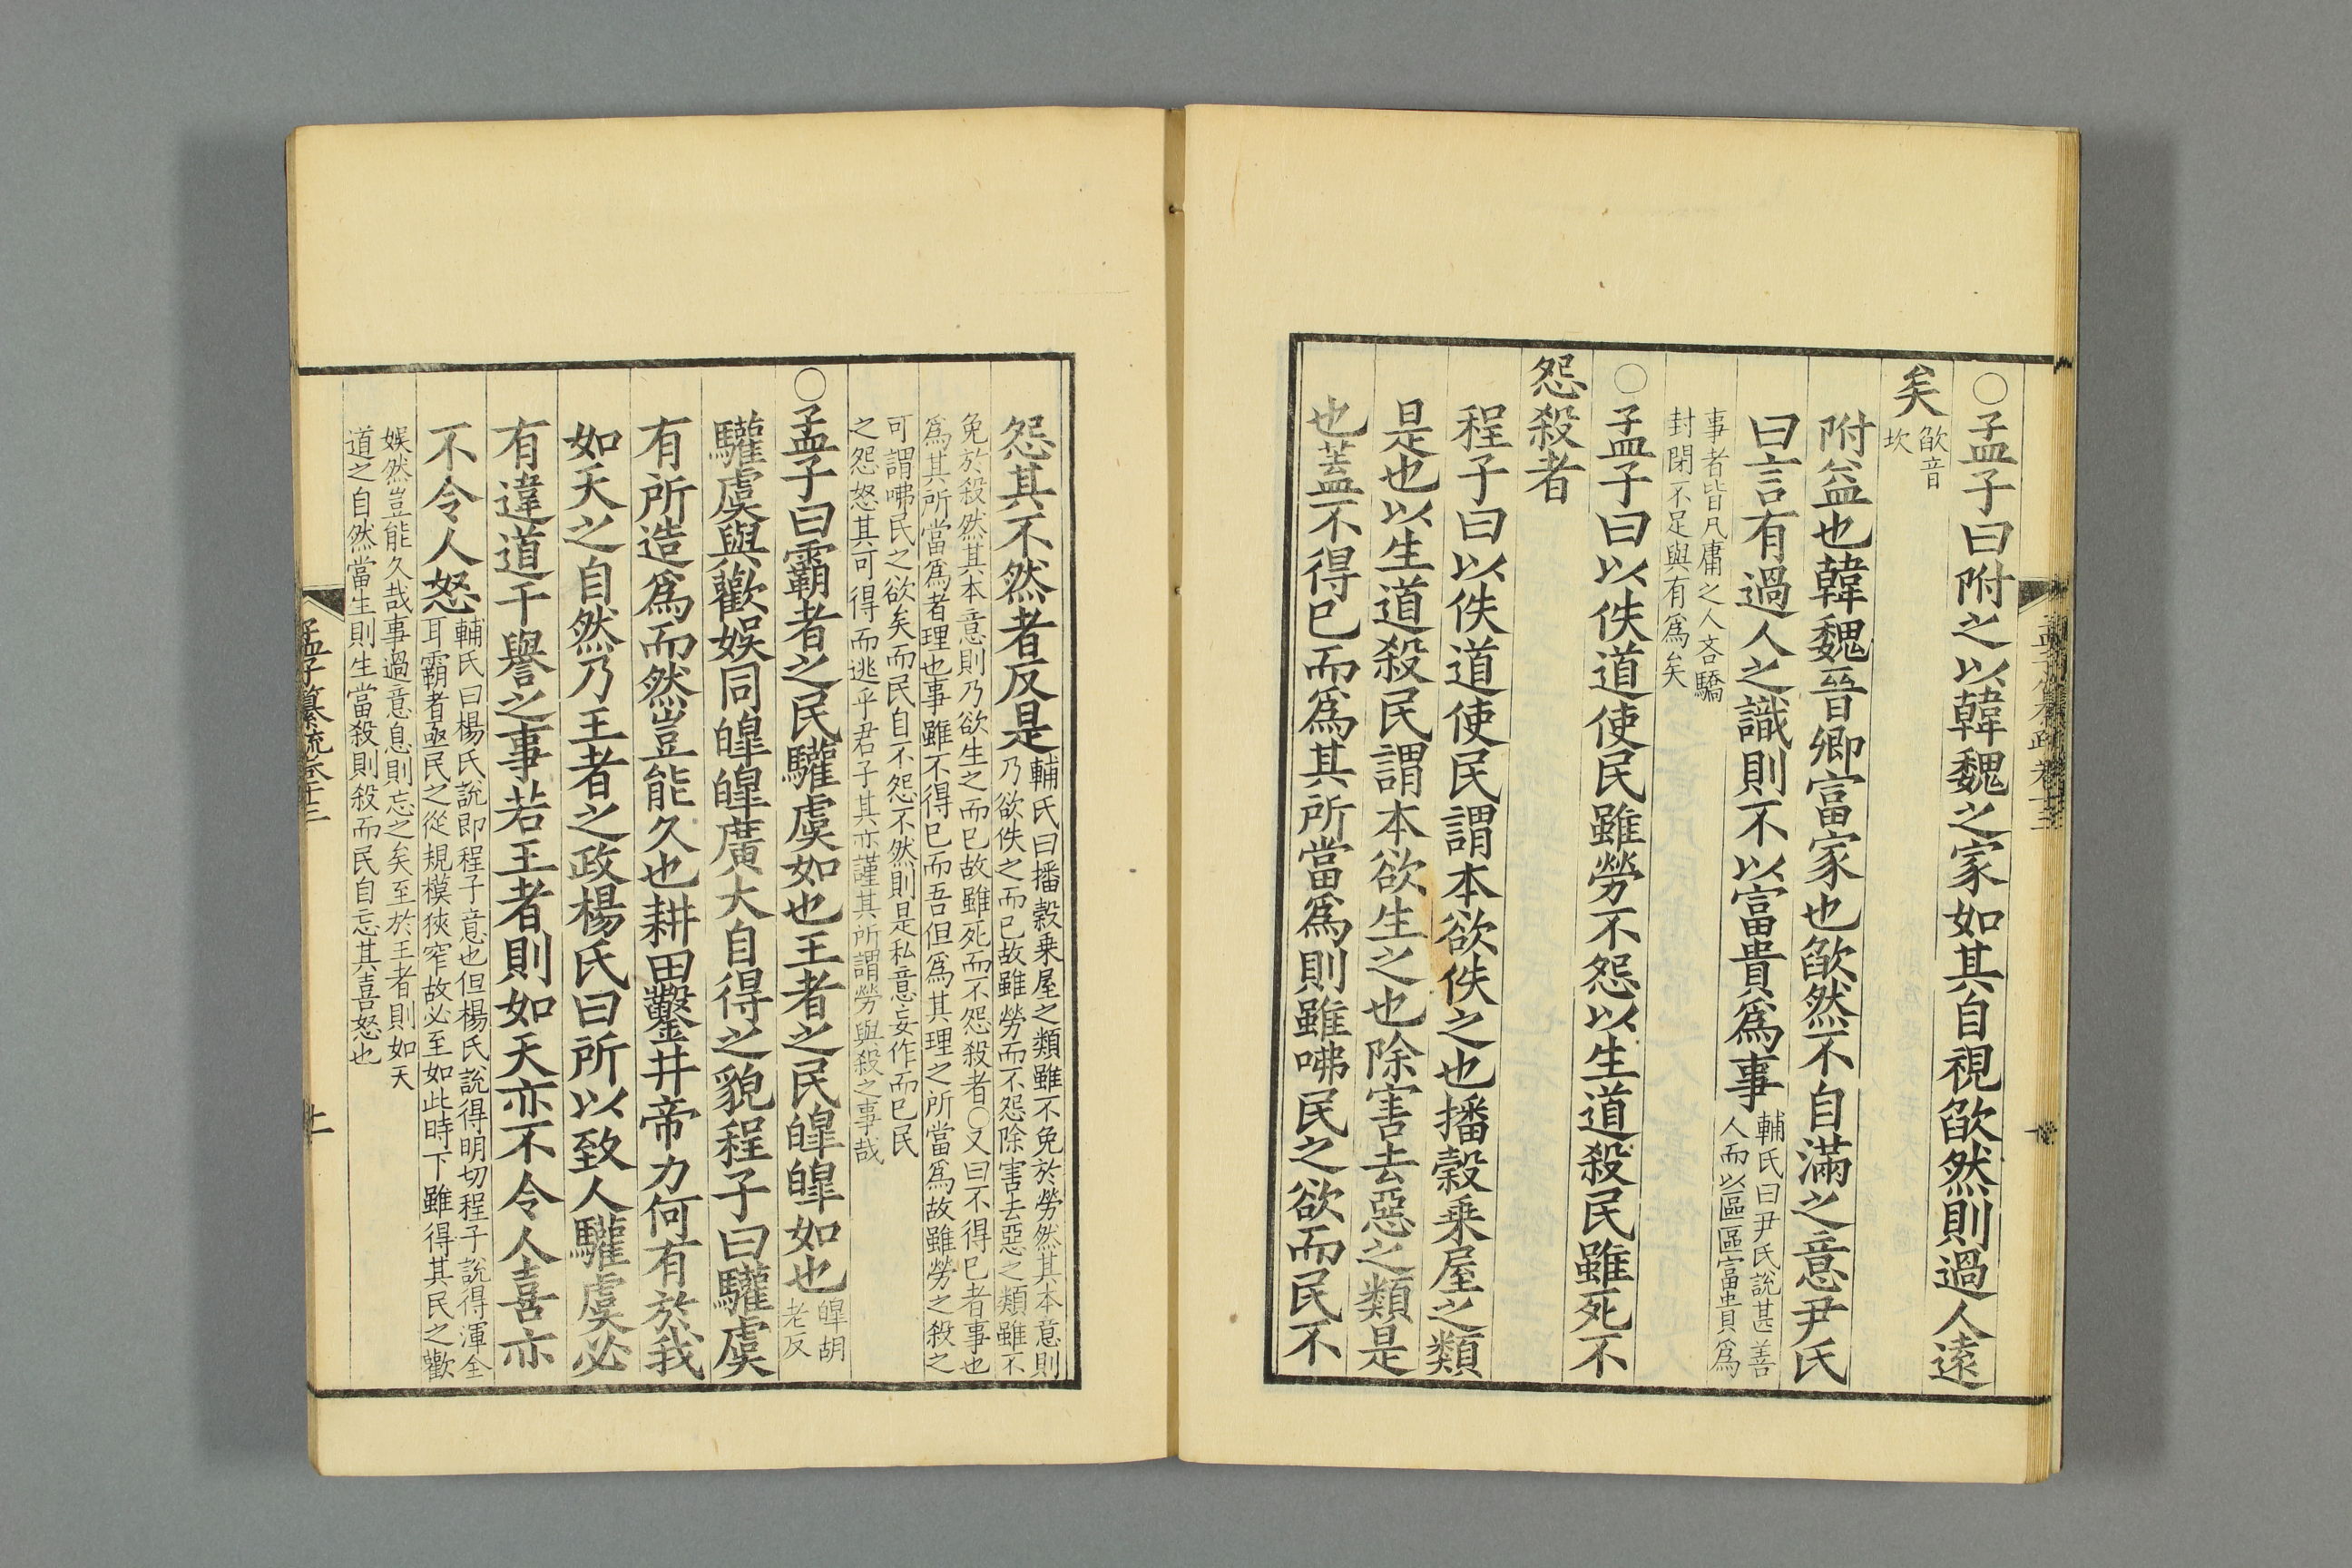 ○孟子曰附之以韓魏之家如其自視欿然則過人遠
矣
欿音
坎
附益也韓魏晉卿富家也欿然不自滿之意尹氏
曰言有過人之識則不以富貴爲事
輔氏曰尹氏說甚善
人而以區區富貴爲
事者皆凡庸之人吝驕
封閉不足與有爲矣
○孟子曰以佚道使民雖勞不怨以生道殺民雖死不
怨殺者
程子曰以佚道使民謂本欲佚之也播穀乗屋之類
是也以生道殺民謂本欲生之也除害去惡之類是
也蓋不得已而爲其所當爲則雖咈民之欲而民不
怨其不然者反是
輔氏曰播穀乗屋之類雖不免於勞然其本意則
乃欲佚之而已故雖勞而不怨除害去惡之類雖不
免於殺然其本意則乃欲生之而已故雖死而不怨殺者○又曰不得已者事也
爲其所當爲者理也事雖不得已而吾但爲其理之所當爲故雖勞之殺之
可謂咈民之欲矣而民自不怨不然則是私意妄作而已民
之怨怒其可得而逃乎君子其亦謹其所謂勞與殺之事哉
○孟子曰霸者之民驩虞如也王者之民皥皥如也
皥胡
老反
驩虞與歡娱同皥皥廣大自得之貌程子曰驩虞
有所造爲而然豈能久也耕田鑿井帝力何有於我
如天之自然乃王者之政楊氏曰所以致人驩虞必
有違道干譽之事若王者則如天亦不令人喜亦
不令人怒
輔氏曰楊氏說即程子意也但楊氏說得明切程子說得渾全
耳霸者亟民之從規模狹窄故必至如此時下雖得其民之歡
娱然豈能久哉事過意息則忘之矣至於王者則如天
道之自然當生則生當殺則殺而民自忘其喜怒也
孟子纂疏卷十三
十一